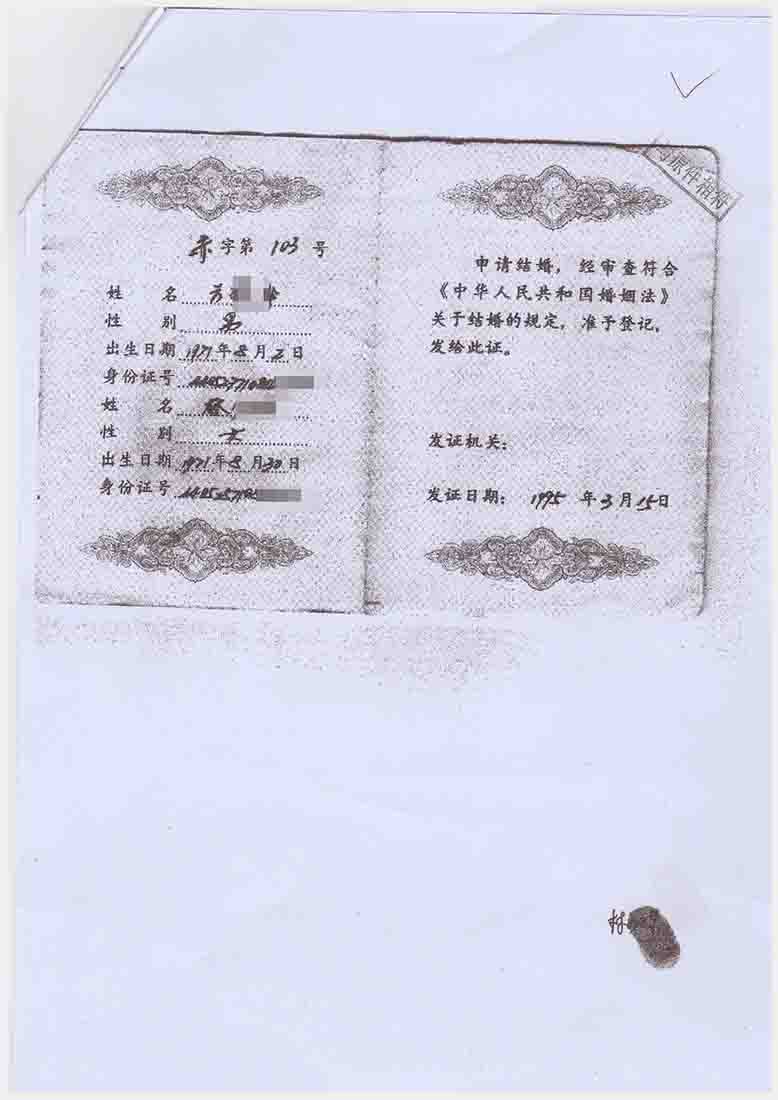 与原件相符
赤字第 103 号
姓 名
性 别 男
出生日期 1971年8月2日
身份证号
姓 名
性 别 女
出生日期 1971年8月30日
身份证号
申请结婚，经审查符合
《中华人民共和国婚姻法》
关于结婚的规定，准予登记，
发给此证。
发证机关：
发证日期： 1995 年 3 月 15 日